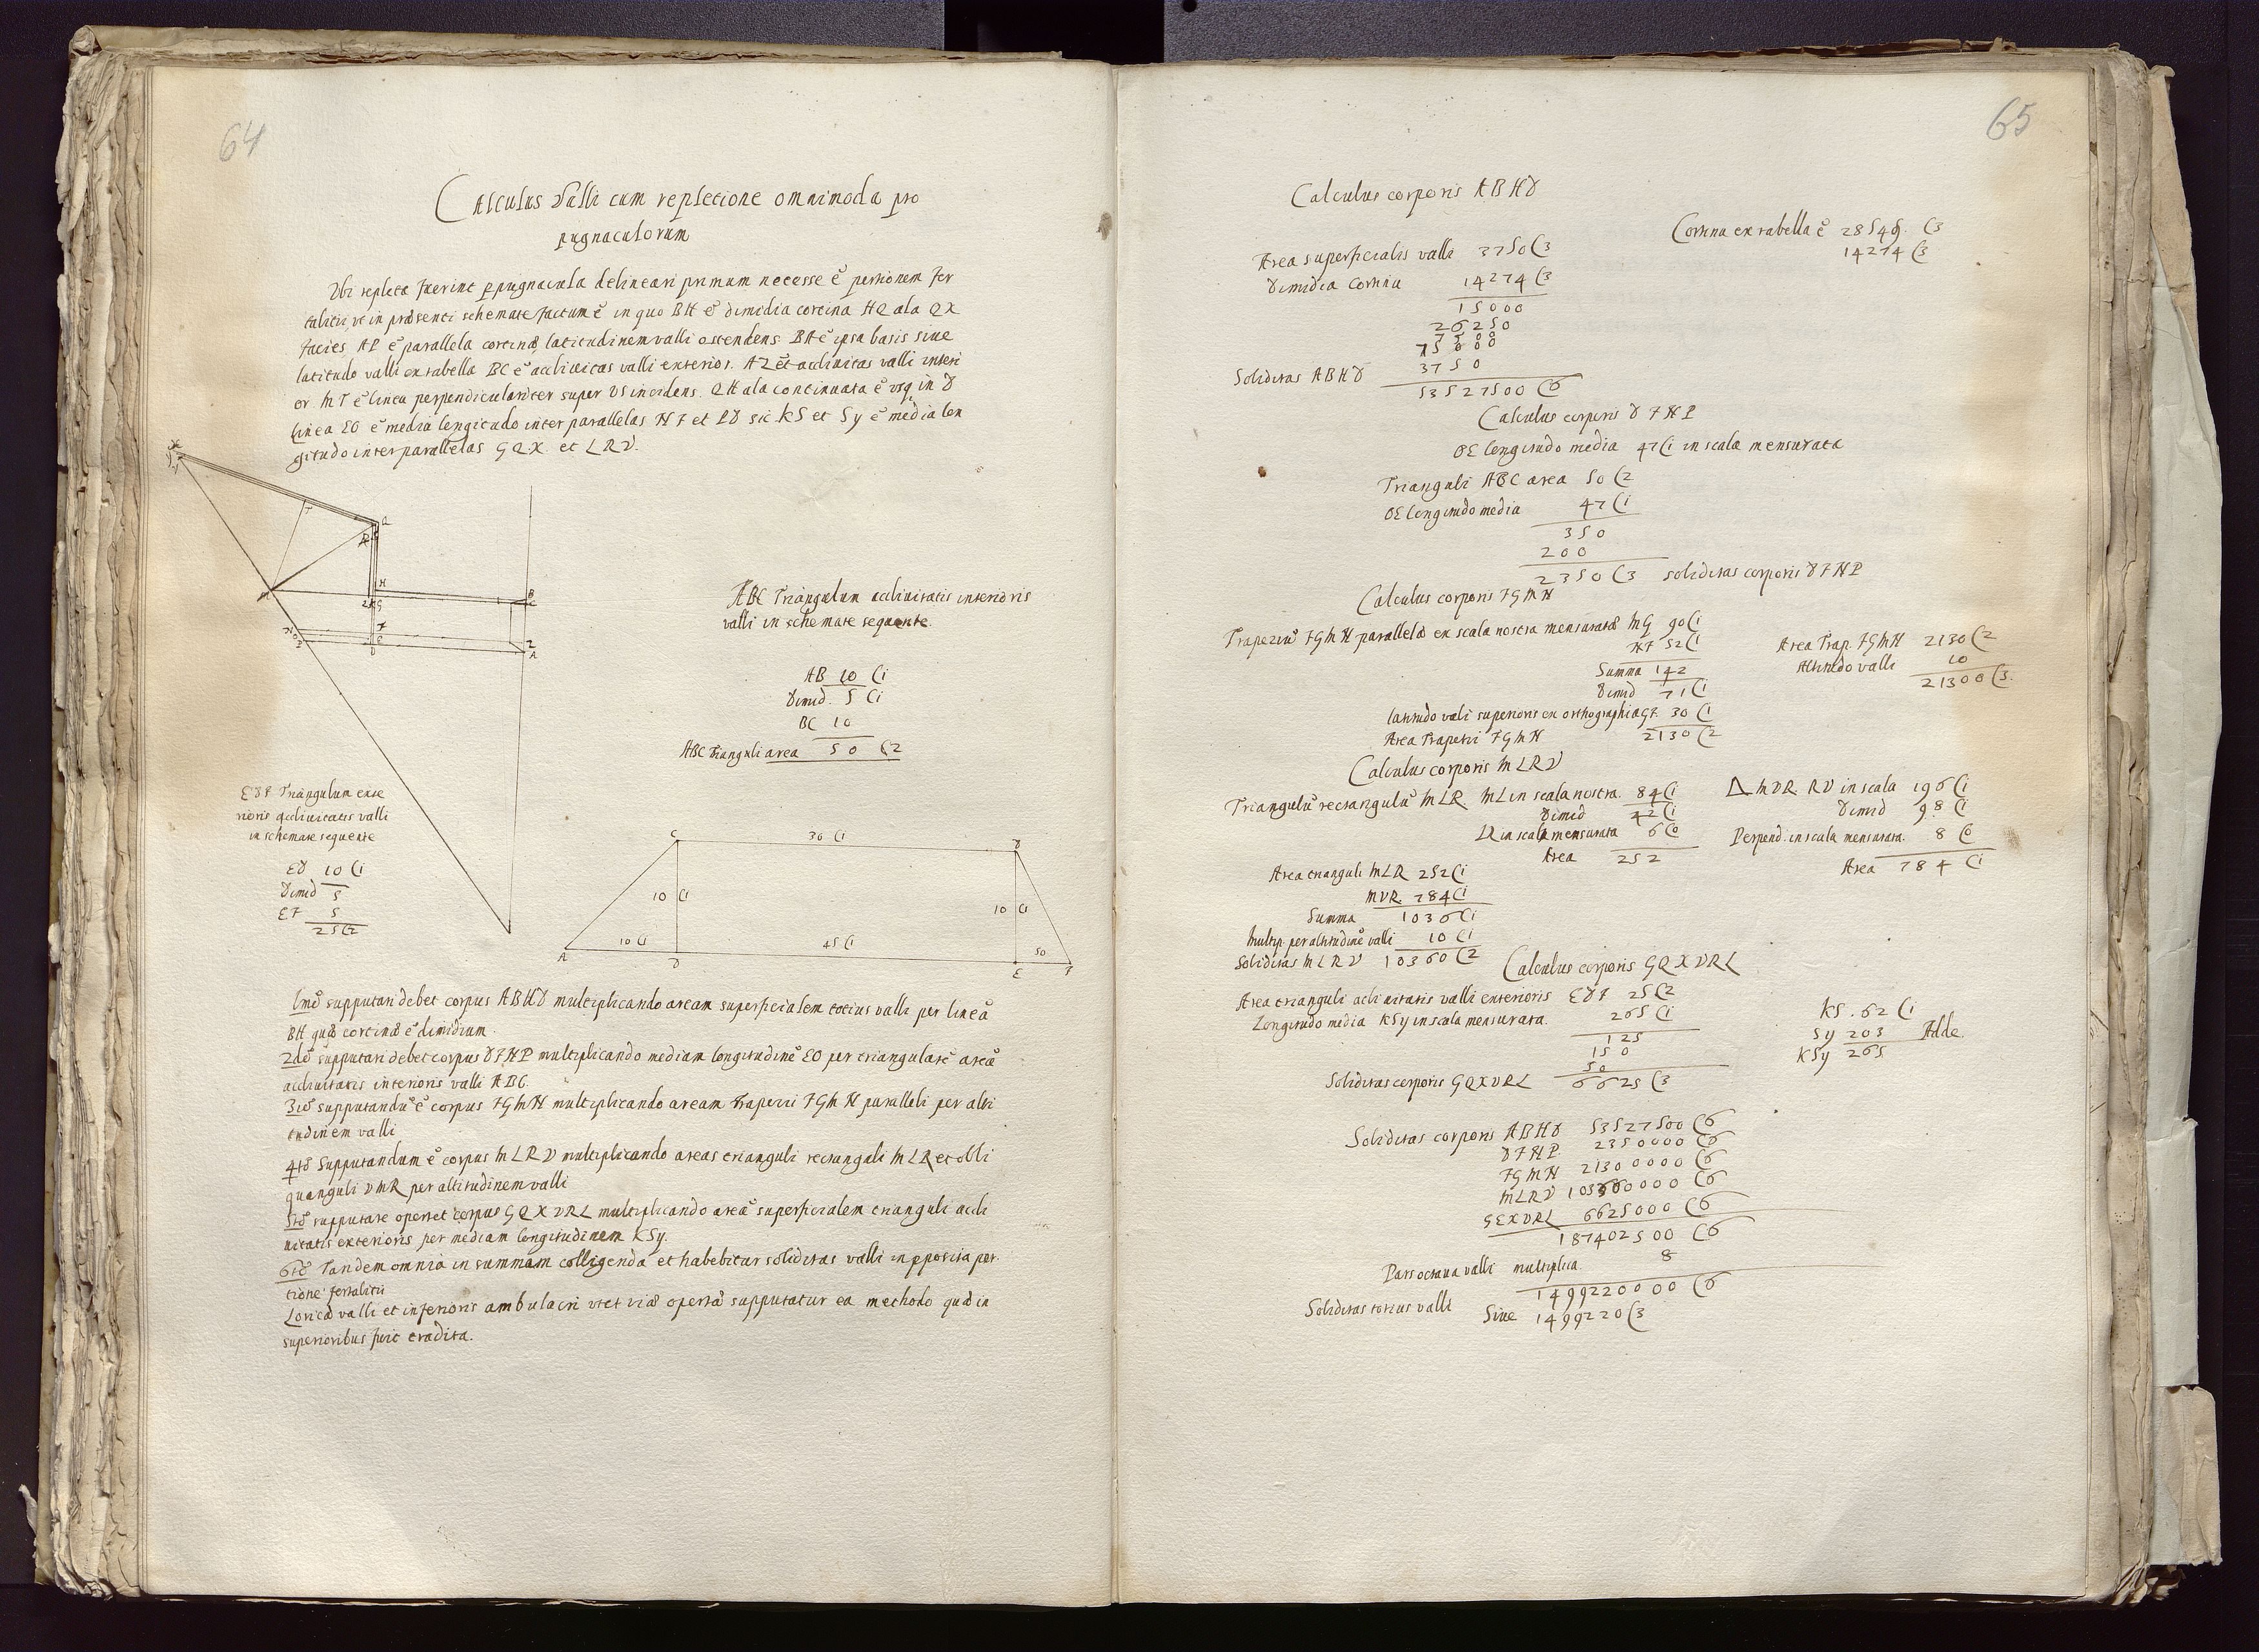 64
Calculus Valli cum repletione omnimoda pro
pugnaculorum
Vbi repleta fuerint ppugnacula delineari primum necesse ē portionem for
talitii, vt in præsenti schemate factum ē in quo BH ē dimidia cortina HQ ala QX
facies, AP ē parallela cortinæ, latitudinem valli ostendens BA ē ipsa basis siue
latitudo valli ex tabella BC ē accliuitas valli exterior. AZ ēt accliuitas valli interi
or MT ē linea perpendiculariter super VS incidens. QH ala continuata ē vsq in D
linea EO ē media longitudo inter parallelas NF et PD sic KS et Sy ē media lon
gitudo inter parallelas GQX et LRV.
ABC Triangulum accliuitatis interioris
valli in schemate sequente.
AB 10 (1
Dimid. 5 (1
BC 10
ABC Trianguli area 50 (2
EDF Triangulum exte
rioris accliuitatis valli
in schemate sequente
ED 10 (1
Dimid 5
EF 5
25 (2
C 30 (1 D
10 (1 10 (1
10 (1 45 (1 50
A D E F
1mō supputari debet corpus ABHD multiplicando aream superficialem totius valli per lineā
BH quæ cortinæ ē dimidium.
2dō supputari debet corpus DFNP multiplicando mediam longitudinē EO per triangularē areā
accliuitatis interioris valli ABC.
3tiō supputandū ē corpus FGMN multiplicando aream Trapezii FGMN paralleli per alti
tudinem valli
4tō Supputandum ē corpus MLRV multiplicando areas trianguli rectanguli MLR et obli
quanguli VMR per altitudinem valli
5tō supputare oportet corpus GQXVRL multiplicando areā superficialem trianguli accli
uitatis exterioris per mediam longitudinem KSy.
6tō Tandem omnia in summam colligenda et habebitur soliditas valli in pposita por
tione fortalitii
Loricæ valli et inferioris ambulacri vt et viæ opertæ supputatur ea methodo quæ in
superioribus fuit tradita.
65
Calculus corporis ABHD
Cortina ex tabella ē 28549. (3
14274 (3
Area superficialis valli 3750 (3
Dimidia Cortina 14274 (3
15000
26250
7500
15000
3750
Soliditas ABHD 53527500 (6
Calculus corporis DFNP
OE longitudo media 47 (1 in scala mensurata
Trianguli ABC area 50 (2
OE longitudo media 47 (1
350
200
2350 (3 soliditas corporis DFNP
Calculus corporis FGMN
Trapeziū FGMN parallelæ ex scala nostra mensuratæ MG 90 (1
NF 52 (1
Summa 142
Dimid 71 (1
latitudo valli superioris ex orthographia GF. 30 (1
Area Trapezii FGMN 2130 (2
Area Trap. FGMN 2130 (2
Altitudo valli 10
21300 (3.
Calculus corporis MLRV
Triangulū rectangulū MLR. ML in scala nostra. 84 (1
Dimid 42 (1
LR in scala mensurata 6 (0
Area 252
△ MVR. RV in scala 196 (1
Dimid 98 (1
Perpend. in scala mensurata. 8 (0
Area 784 (1
Area trianguli MLR 252 (1
MVR. 784 (1
Summa 1036 (1
Multip. per altitudinē valli 10 (1
Soliditas MLRV 10360 (2
Calculus corporis GQXVRL
Area trianguli accliuitatis valli exterioris EDF 25 (2
Longitudo media KSy in scala mensurata. 265 (1
125
150
50
Soliditas corporis GQXVRL 6625 (3
KS. 62 (1
Sy 203 Adde.
KSy 265
Soliditas corporis ABHD 53527500 (6
DFNP. 2350000 (6
FGMN 21300000 (6
MLRV 103600000 (6
GEXVRL 6625000 (6
187402500 (6
Pars octaua valli multiplica. 8
1499220000 (6
Soliditas totius valli Siue 1499220 (3